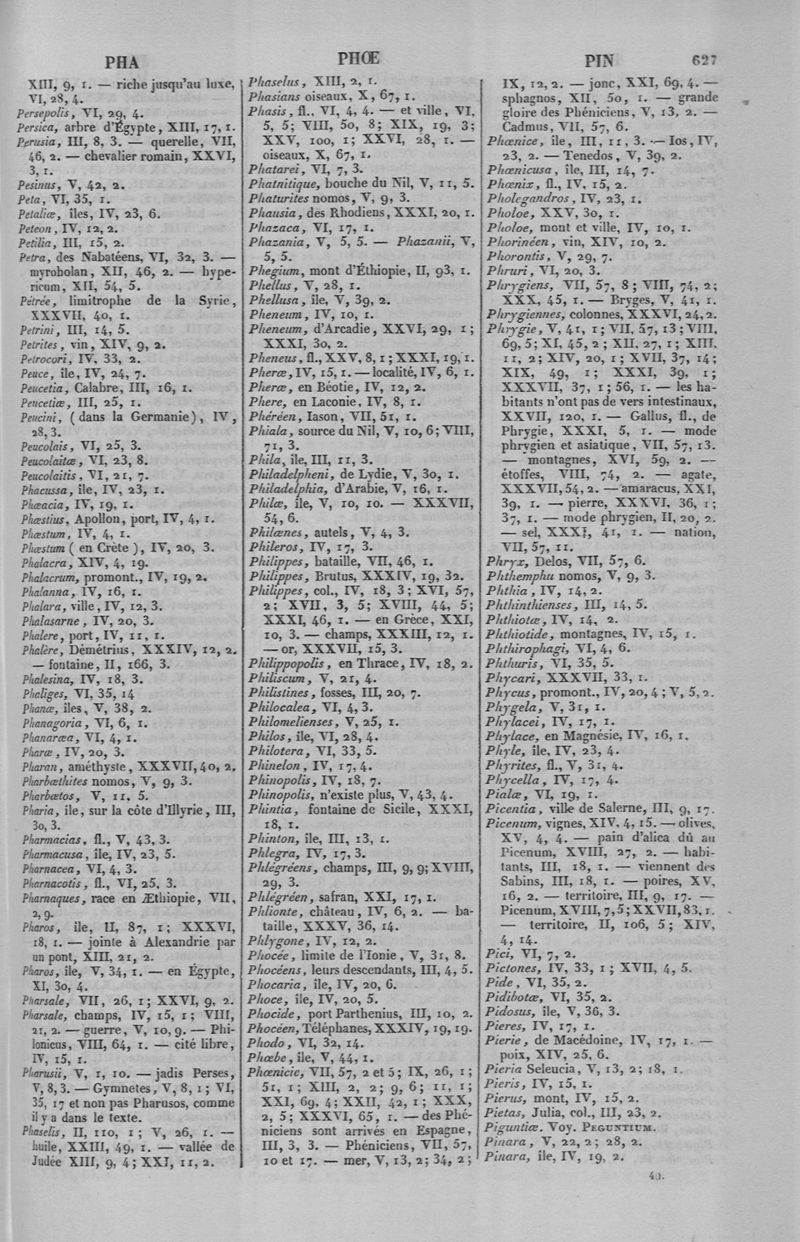 PHA
PHŒ
PIN
627
XIII, 9, 1. — riche jusqu'au luxe,
VI, 28, 4.
Persepolis, VI, 29, 4.
Persica, arbre d'Égypte, XIII, 17, 1.
Perusia, III, 8, 3. — querelle, VII,
46, 2. — chevalier romain, XXVI,
3, 1.
Pesinus, V, 42, 2.
Peta, VI, 35, 1.
Petaliæ, îles, IV, 23, 6.
Peteon, IV, 12, 2.
Petilia, III, 15, 2.
Petra, des Nabatéens, VI, 32, 3. —
myrobolan, XII, 46, 2. — hype-
ricum, XII, 54, 5.
Pétrée, limitrophe de la Syrie,
XXXVII, 40, 1.
Petrini, III, 14, 5.
Petrites, vin, XIV, 9, 2.
Petrocori, IV, 33, 2.
Peuce, île, IV, 24, 7.
Peucetia, Calabre, III, 16, 1.
Peucetiæ, III, 25, 1.
Peucini, ( dans la Germanie), IV,
28, 3.
Peucolais, VI, 25, 3.
Peucolaitæ, VI, 23, 8.
Peucolaitis, VI, 21, 7.
Phacussa, île, IV, 23, 1.
Phæacia, IV, 19, 1.
Phæstius, Apollon, port, IV, 4, 1.
Phæstum, IV, 4, 1.
Phæstum ( en Crète ), IV, 20, 3.
Phalacra, XIV, 4, 19.
Phalacrum, promont., IV, 19, 2.
Phalanna, IV, 16, 1.
Phalara, ville, IV, 12, 3.
Phalasarne, IV, 20, 3.
Phalere, port, IV, 11, 1.
Phalère, Démétrius, XXXIV, 12, 2.
— fontaine, II, 166, 3.
Phalesina, IV, 18, 3.
Phaliges, VI, 35, 14
Phanæ, îles, V, 38, 2.
Phanagoria, VI, 6, 1.
Phanaræa, VI, 4, 1.
Pharæ, IV, 20, 3.
Pharan, améthyste, XXXVII, 40, 2.
Pharbæthites nomos, V, 9, 3.
Pharbætos, V, 11, 5.
Pharia, île, sur la côte d'Illyrie, III,
30, 3.
Pharmacias, fl., V, 43, 3.
Pharmacusa, île, IV, 23, 5.
Pharnacea, VI, 4, 3.
Pharnacotis, fl., VI, 25, 3.
Pharnaques, race en Æthiopie, VII,
2, 9.
Pharos, île, II, 87, 1; XXXVI,
18, 1. — jointe à Alexandrie par
un pont, XIII, 21, 2.
Pharos, île, V, 34, 1. — en Égypte,
XI, 30, 4.
Pharsale, VII, 26, 1; XXVI, 9, 2.
Pharsale, champs, IV, 15, 1; VIII,
21, 2. — guerre, V, 10, 9. — Phi-
lonicus, VIII, 64, 1. — cité libre,
IV, 15, 1.
Pharusii, V, 1, 10. — jadis Perses,
V, 8, 3. — Gymnetes, V, 8, 1; VI,
35, 17 et non pas Pharusos, comme
il y a dans le texte.
Phaselis, II, 110, 1; V, 26, 1. —
huile, XXIII, 49, 1. — vallée de
Judée XIII, 9, 4; XXI, 11, 2.
Phaselus, XIII, 2, 1.
Phasians oiseaux, X, 67, 1.
Phasis, fl., VI, 4, 4. — et ville, VI,
5, 5; VIII, 50, 8; XIX, 19, 3;
XXV, 100, 1; XXVI, 28, 1. —
oiseaux, X, 67, 1.
Phatarei, VI, 7, 3.
Phatnitique, bouche du Nil, V, 11, 5.
Phaturites nomos, V, 9, 3.
Phausia, des Rhodiens, XXXI, 20, 1.
Phazaca, VI, 17, 1.
Phazania, V, 5, 5. — Phazanii, V,
5, 5.
Phegium, mont d'Éthiopie, II, 93, 1.
Phellus, V, 28, 1.
Phellusa, île, V, 39, 2.
Pheneum, IV, 10, 1.
Pheneum, d'Arcadie, XXVI, 29, 1;
XXXI, 30, 2.
Pheneus, fl., XXV, 8, 1; XXXI, 19, 1.
Pheræ, IV, 15, 1. — localité, IV, 6, 1.
Pheræ, en Béotie, IV, 12, 2.
Phere, en Laconie, IV, 8, 1.
Phéréen, Iason, VII, 51, 1.
Phiala, source du Nil, V, 10, 6; VIII,
71, 3.
Phila, île, III, 11, 3.
Philadelpheni, de Lydie, V, 30, 1.
Philadelphia, d'Arabie, V, 16, 1.
Philæ, île, V, 10, 10. — XXXVII,
54, 6.
Philænes, autels, V, 4, 3.
Phileros, IV, 17, 3.
Philippes, bataille, VII, 46, 1.
Philippes, Brutus, XXXIV, 19, 32.
Philippes, col., IV, 18, 3; XVI, 57,
2; XVII, 3, 5; XVIII, 44, 5;
XXXI, 46, 1. — en Grèce, XXI,
10, 3. — champs, XXXIII, 12, 1.
— or, XXXVII, 15, 3.
Philippopolis, en Thrace, IV, 18, 2.
Philiscum, V, 21, 4.
Philistines, fosses, III, 20, 7.
Philocalea, VI, 4, 3.
Philomelienses, V, 25, 1.
Philos, île, VI, 28, 4.
Philotera, VI, 33, 5.
Phinelon, IV, 17, 4.
Phinopolis, IV, 18, 7.
Phinopolis, n'existe plus, V, 43, 4.
Phintia, fontaine de Sicile, XXXI,
18, 1.
Phinton, île, III, 13, 1.
Phlegra, IV, 17, 3.
Phlégréens, champs, III, 9, 9; XVIII,
29, 3.
Phlégréen, safran, XXI, 17, 1.
Phlionte, château, IV, 6, 2. — ba-
taille, XXXV, 36, 14.
Phlygone, IV, 12, 2.
Phocée, limite de l'Ionie, V, 31, 8.
Phocéens, leurs descendants, III, 4, 5.
Phocaria, île, IV, 20, 6.
Phoce, île, IV, 20, 5.
Phocide, port Parthenius, III, 10, 2.
Phocéen, Téléphanes, XXXIV, 19, 19.
Phodo, VI, 32, 14.
Phœbe, île, V, 44, 1.
Phœnicie, VII, 57, 2 et 5; IX, 26, 1;
51, 1; XIII, 2, 2; 9, 6; 11, 1;
XXI, 69, 4; XXII, 42, 1; XXX,
2, 5; XXXVI, 65, 1. — des Phé-
niciens sont arrivés en Espagne,
III, 3, 3. — Phéniciens, VII, 57,
10 et 17. — mer, V, 13, 2; 34, 2;
IX, 12, 2. — jonc, XXI, 69, 4. —
sphagnos, XII, 50, 1. — grande
gloire des Phéniciens, V, 13, 2. —
Cadmus, VII, 57, 6.
Phœnice, île, III, 11, 3. — Ios, IV,
23, 2. — Tenedos, V, 39, 2.
Phœnicusa, île, III, 14, 7.
Phœnix, fl., IV, 15, 2.
Pholegandros, IV, 23, 1.
Pholoe, XXV, 30, 1.
Pholoe, mont et ville, IV, 10, 1.
Phorinéen, vin, XIV, 10, 2.
Phorontis, V, 29, 7.
Phruri, VI, 20, 3.
Phrygiens, VII, 57, 8; VIII, 74, 2;
XXX, 45, 1. — Bryges, V, 41, 1.
Phrygiennes, colonnes, XXXVI, 24, 2.
Phrygie, V, 41, 1; VII, 57, 13; VIII,
69, 5; XI, 45, 2; XII, 27, 1; XIII,
11, 2; XIV, 20, 1; XVII, 37, 14;
XIX, 49, 1; XXXI, 39, 1;
XXXVII, 37, 1; 56, 1. — les ha-
bitants n'ont pas de vers intestinaux,
XXVII, 120, 1. — Gallus, fl., de
Phrygie, XXXI, 5, 1. — mode
phrygien et asiatique, VII, 57, 13.
— montagnes, XVI, 59, 2. —
étoffes, VIII, 74, 2. — agate,
XXXVII, 54, 2. — amaracus, XXI,
39, 1. — pierre, XXXVI, 36, 1;
37, 1. — mode phrygien, II, 20, 2.
— sel, XXXI, 41, 1. — nation,
VII, 57, 11.
Phryx, Delos, VII, 57, 6.
Phthemphu nomos, V, 9, 3.
Phthia, IV, 14, 2.
Phthinthienses, III, 14, 5.
Phthiotæ, IV, 14, 2.
Phthiotide, montagnes, IV, 15, 1.
Phthirophagi, VI, 4, 6.
Phthuris, VI, 35, 5.
Phycari, XXXVII, 33, 1.
Phycus, promont., IV, 20, 4; V, 5, 2.
Phygela, V, 31, 1.
Phylacei, IV, 17, 1.
Phylace, en Magnésie, IV, 16, 1.
Phyle, île, IV, 23, 4.
Phyrites, fl., V, 31, 4.
Phycella, IV, 17, 4.
Pialæ, VI, 19, 1.
Picentia, ville de Salerne, III, 9, 17.
Picenum, vignes, XIV, 4, 15. — olives,
XV, 4, 4. — pain d'alica dû au
Picenum, XVIII, 27, 2. — habi-
tants, III, 18, 1. — viennent des
Sabins, III, 18, 1. — poires, XV,
16, 2. — territoire, III, 9, 17. —
Picenum, XVIII, 7, 5; XXVII, 83, 1.
— territoire, II, 106, 5; XIV,
4, 14.
Pici, VI, 7, 2.
Pictones, IV, 33, 1; XVII, 4, 5.
Pide, VI, 35, 2.
Pidibotæ, VI, 35, 2.
Pidosus, île, V, 36, 3.
Pieres, IV, 17, 1.
Pierie, de Macédoine, IV, 17, 1. —
poix, XIV, 25, 6.
Pieria Seleucia, V, 13, 2; 18, 1.
Pieris, IV, 15, 1.
Pierus, mont, IV, 15, 2.
Pietas, Julia, col., III, 23, 2.
Piguntiæ. Voy. PEGUNTIUM.
Pinara, V, 22, 2; 28, 2.
Pinara, île, IV, 19, 2.
40.